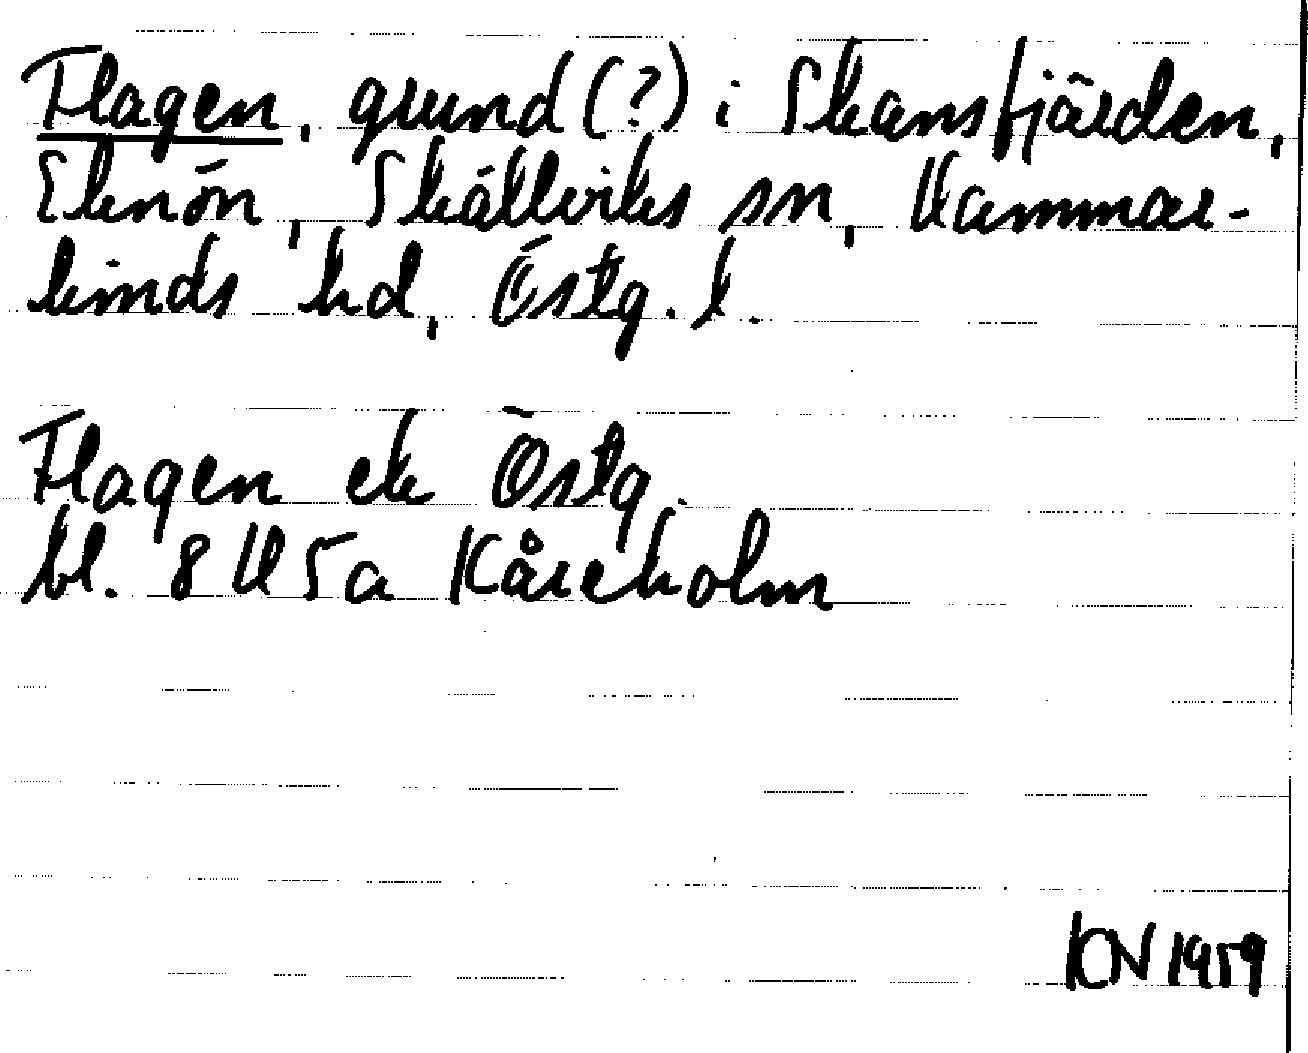 Flagen, grund (?) i Skansfjärden,
Eknön, Skällviks sn, Hammar-
kinds hd, Östg. l.
Flagen ek Östg.
bl. 8 H 5 a Kåreholm
KN 1959